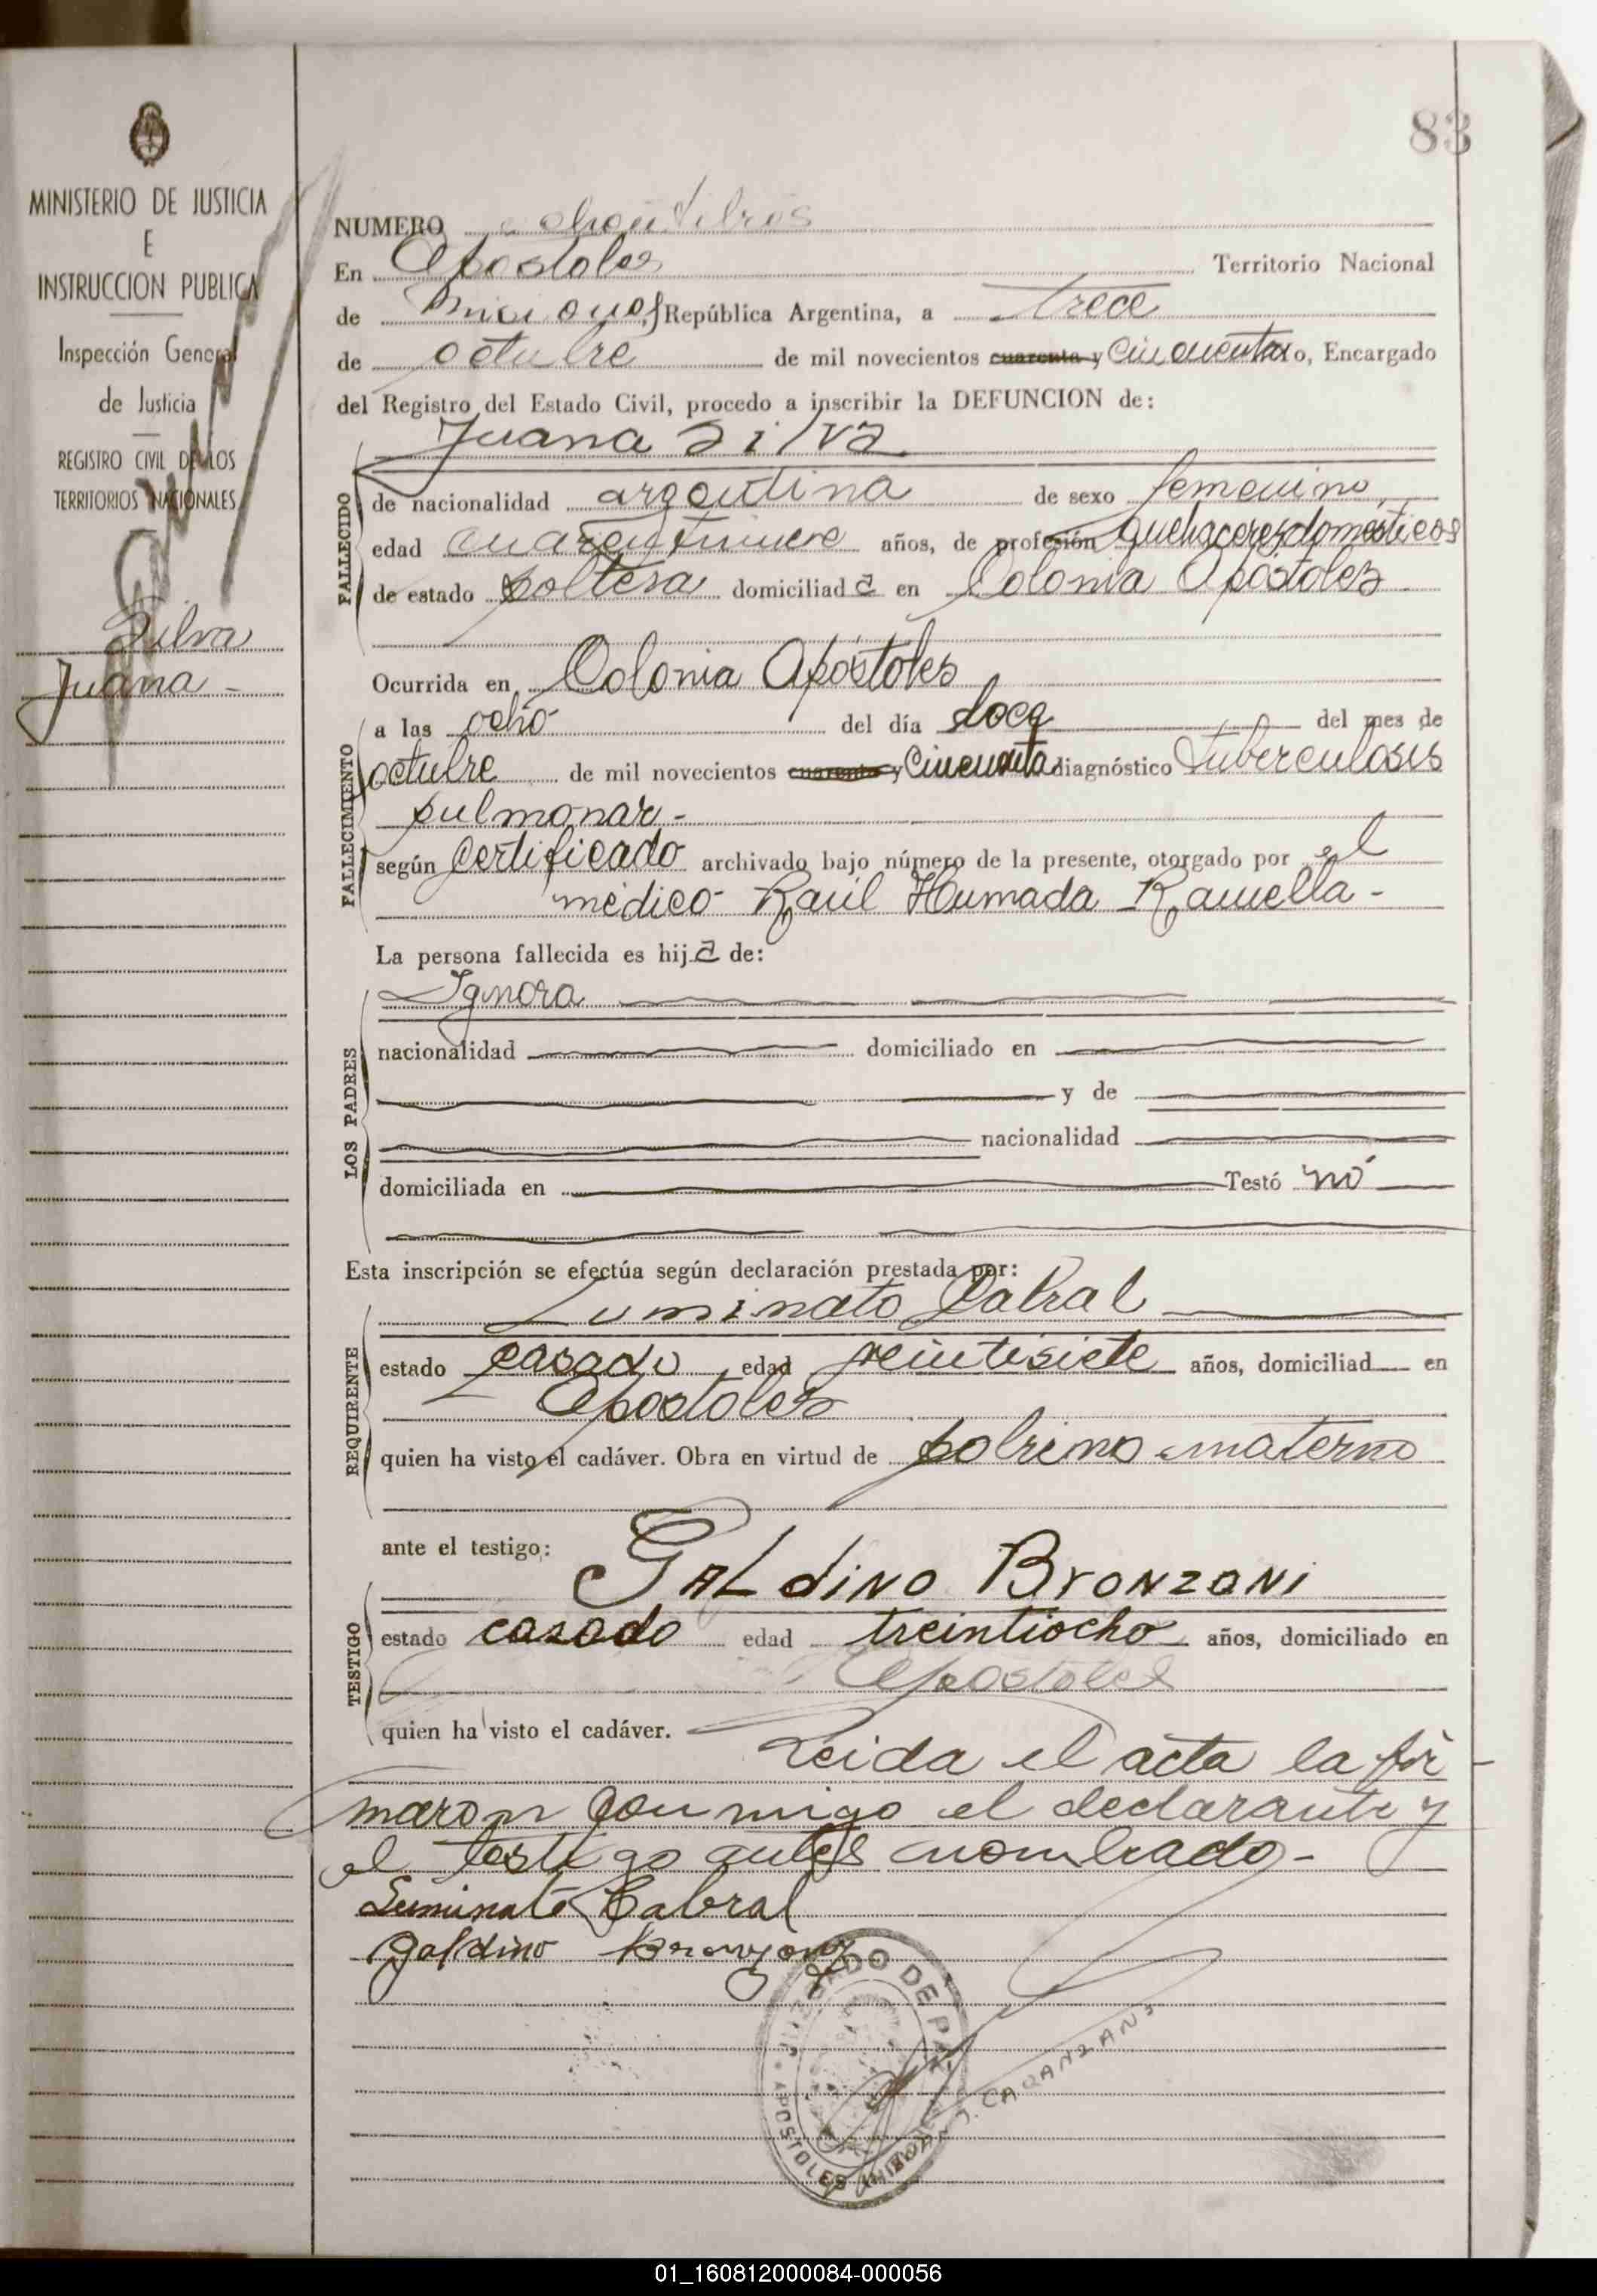 83
MINISTERIO DE JUSTICIA
E
INSTRUCCION PUBLICA
Inspección General
de Justicia
REGISTRO CIVIL DE LOS
TERRITORIOS NACIONALES
Silva
Juana -
NUMERO ochentitres
En Apostoles Territorio Nacional
de Misiones, República Argentina, a trece
de octubre de mil novecientos cuarenta y Cincuenta o, Encargado
del Registro del Estado Civil, procedo a inscribir la DEFUNCION de:
Juana Silva
FALLECIDO
de nacionalidad argentina de sexo femenino,
edad cuarentinueve años, de profesión quehaceres domésticos
de estado soltera domiciliada en Colonia Apóstoles
Ocurrida en Colonia Apóstoles
FALLECIMIENTO
a las ocho del día doce del mes de
octubre de mil novecientos cuarenta y Cincuenta diagnóstico Tuberculosis
pulmonar -
según Certificado archivado bajo número de la presente, otorgado por el
médico Raúl Humada Ramella -
La persona fallecida es hija de:
LOS PADRES
Ignora
nacionalidad domiciliado en
y de
nacionalidad
domiciliada en Testó nó
Esta inscripción se efectúa según declaración prestada por:
REQUIRENTE
Luminato Cabral
estado casado edad veintisiete años, domiciliad en
Apostoles
quien ha visto el cadáver. Obra en virtud de sobrino materno
ante el testigo:
TESTIGO
GALdiNO BroNzoNi
estado casado edad treintiocho años, domiciliado en
Apostoles
quien ha visto el cadáver. Leida el acta la fir-
maron conmigo el declarante y
el testigo antes nombrado -
Luminato Cabral
Galdino Bronzoni
JUZGADO DE PAZ
APOSTOLES
01_160812000084-000056